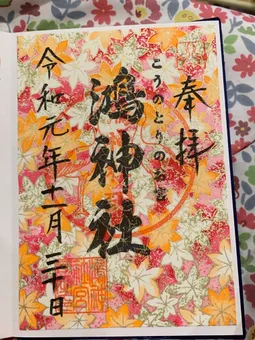 奉拝
こうのとりのお宮
鴻神社
令和元年十一月三十日